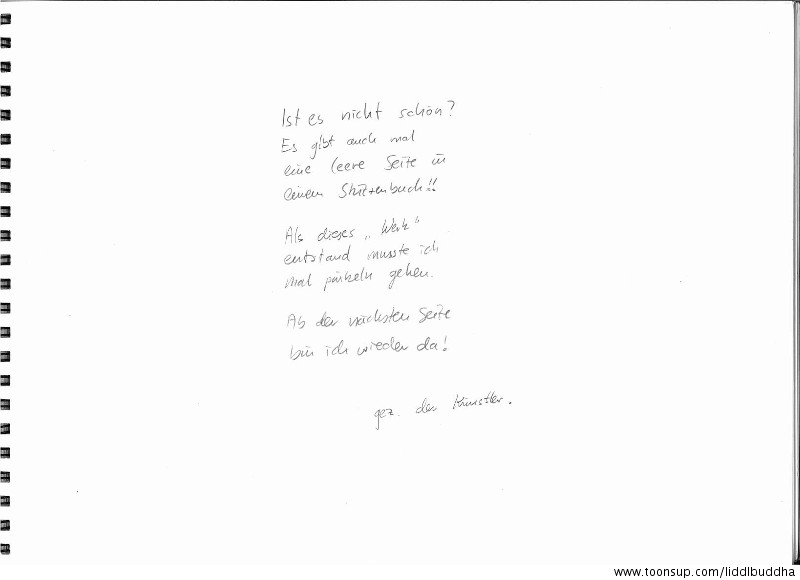 Ist es nicht schön?
Es gibt auch mal
eine leere Seite in
einem Skizzenbuch!!
Als dieses „Werk“
entstand musste ich
mal pinkeln gehen.
Ab der nächsten Seite
bin ich wieder da!
gez. der Künstler.
www.toonsup.com/liddlbuddha